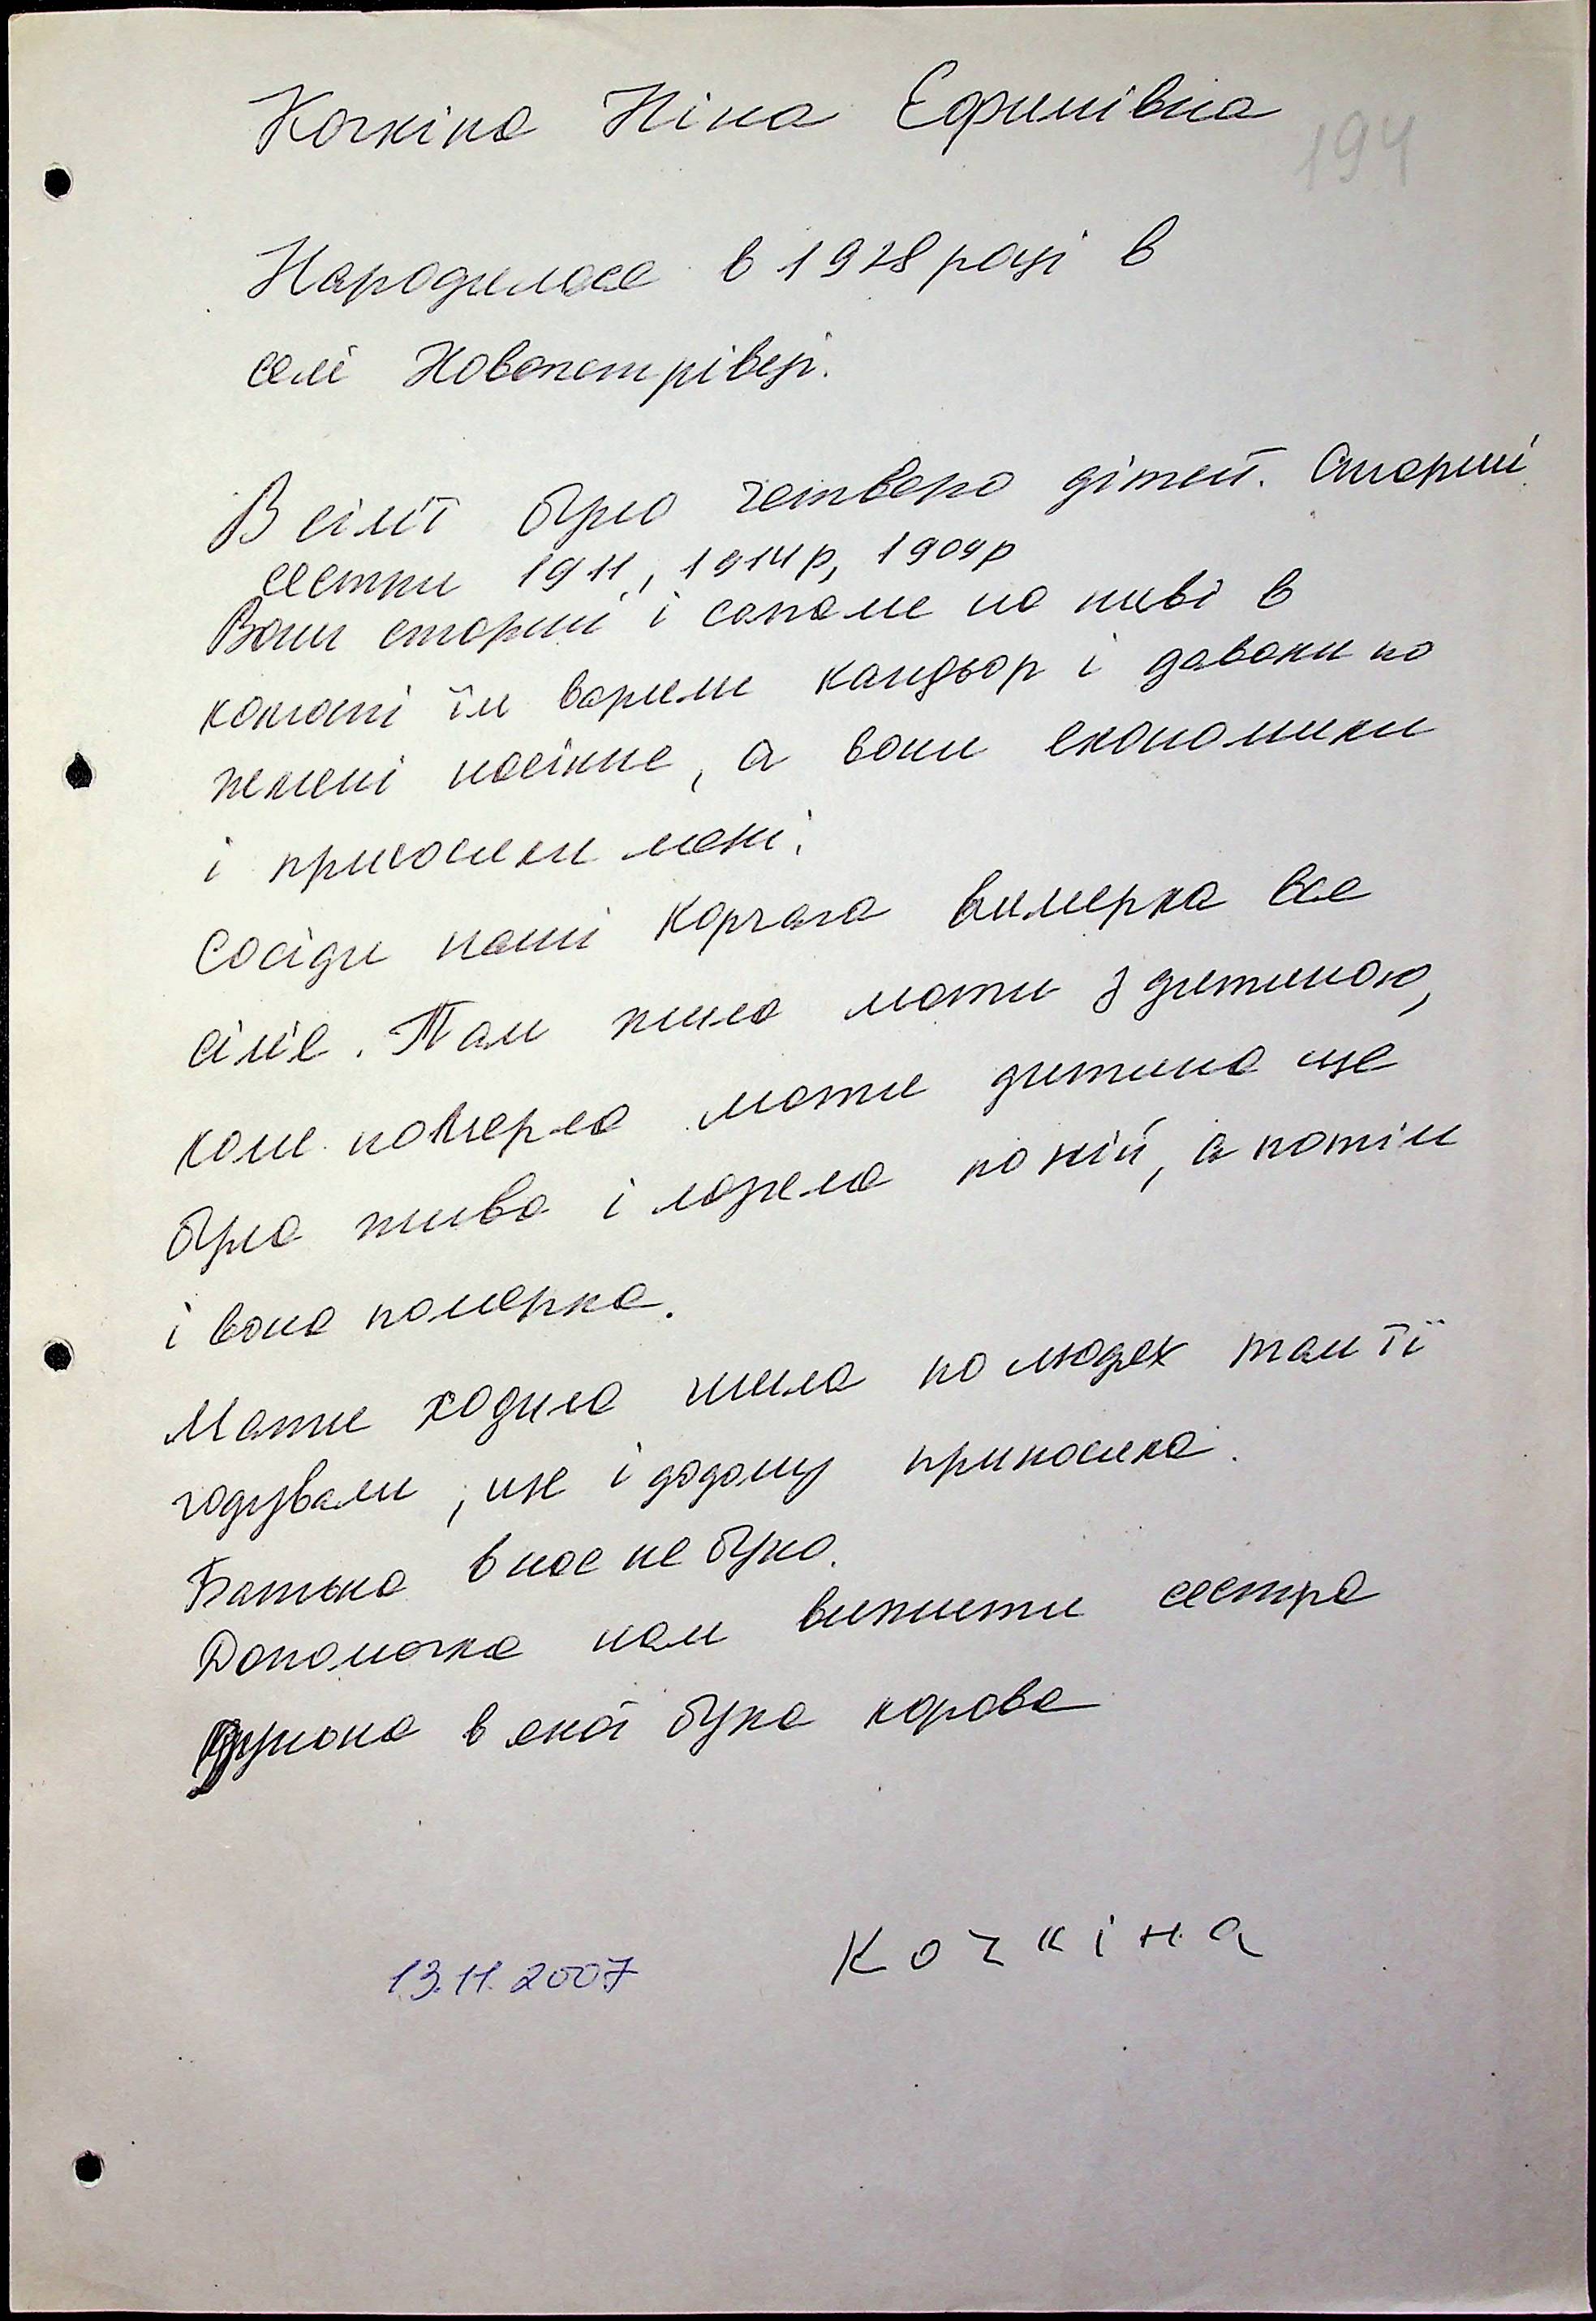 Кочкіна Ніна Єфимівна
194
Народилася в 1928 році в
селі Новопетрівці.
В сім'ї було четверо дітей. Старші
сестри 1911, 1914р, 1909р
Вони старші і сапали на ниві в
колгоспі їм варили кандьор і давали по
жмені насіння, а вони економили
і приносили мені.
Сосіди наші Корчага вимерла вся
сім'я. Там жила мати з дитиною,
коли померла мати дитина ще
була жива і лазила по ній, а потім
і вона померла.
Мати ходила шила по людях там її
годували, ще і додому приносила.
Батька в нас не було.
Допомогла нам вижити сестра
в якої була корова
13.11.2007 Кочкіна